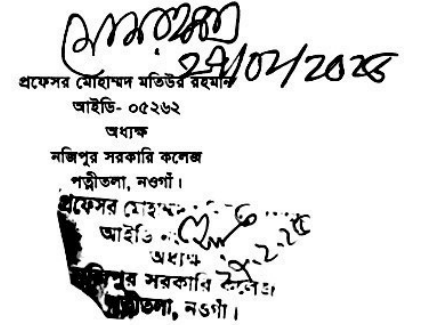 ২৭/০২/২০২৪
প্রফেসর মোহাম্মদ মতিউর রহমান
আইডি- ০৫২৬২
অধ্যক্ষ
নজিপুর সরকারি কলেজ
পত্নীতলা, নওগাঁ।
প্রফেসর মোহাম্মদ
আইডি
অধ্যক্ষ
নজিপুর সরকারি কলেজ
পত্নীতলা, নওগাঁ।